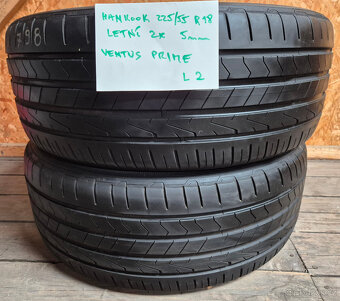 HANKOOK 225/55 R18
LETNÍ 2x 5mm
VENTUS PRIME
L2